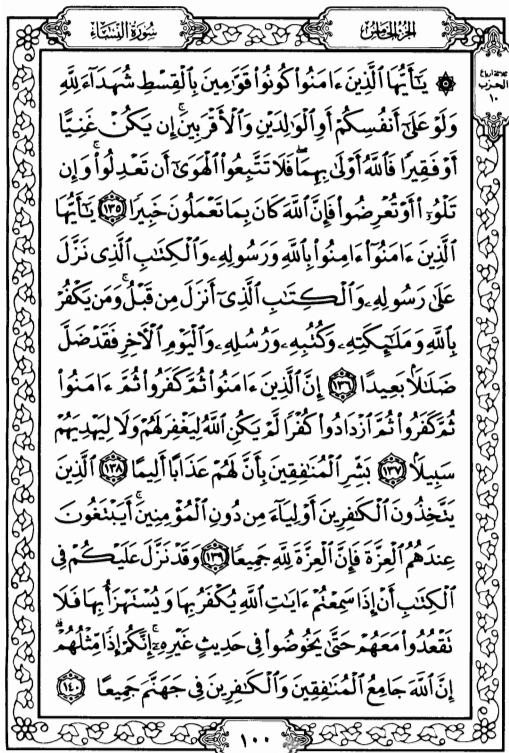 سُورَةُ النِّسَاءِ
الجُزْءُ الخَامِسُ
الحزب
١٠
۞ يَٰٓأَيُّهَا ٱلَّذِينَ ءَامَنُوا۟ كُونُوا۟ قَوَّٰمِينَ بِٱلْقِسْطِ شُهَدَآءَ لِلَّهِ
وَلَوْ عَلَىٰٓ أَنفُسِكُمْ أَوِ ٱلْوَٰلِدَيْنِ وَٱلْأَقْرَبِينَ ۚ إِن يَكُنْ غَنِيًّا
أَوْ فَقِيرًا فَٱللَّهُ أَوْلَىٰ بِهِمَا ۖ فَلَا تَتَّبِعُوا۟ ٱلْهَوَىٰٓ أَن تَعْدِلُوا۟ ۚ وَإِن
تَلْوُۥٓا۟ أَوْ تُعْرِضُوا۟ فَإِنَّ ٱللَّهَ كَانَ بِمَا تَعْمَلُونَ خَبِيرًا ١٣٥ يَٰٓأَيُّهَا
ٱلَّذِينَ ءَامَنُوٓا۟ ءَامِنُوا۟ بِٱللَّهِ وَرَسُولِهِۦ وَٱلْكِتَٰبِ ٱلَّذِى نَزَّلَ
عَلَىٰ رَسُولِهِۦ وَٱلْكِتَٰبِ ٱلَّذِىٓ أَنزَلَ مِن قَبْلُ ۚ وَمَن يَكْفُرْ
بِٱللَّهِ وَمَلَٰٓئِكَتِهِۦ وَكُتُبِهِۦ وَرُسُلِهِۦ وَٱلْيَوْمِ ٱلْءَاخِرِ فَقَدْ ضَلَّ
ضَلَٰلًۢا بَعِيدًا ١٣٦ إِنَّ ٱلَّذِينَ ءَامَنُوا۟ ثُمَّ كَفَرُوا۟ ثُمَّ ءَامَنُوا۟
ثُمَّ كَفَرُوا۟ ثُمَّ ٱزْدَادُوا۟ كُفْرًا لَّمْ يَكُنِ ٱللَّهُ لِيَغْفِرَ لَهُمْ وَلَا لِيَهْدِيَهُمْ
سَبِيلًۢا ١٣٧ بَشِّرِ ٱلْمُنَٰفِقِينَ بِأَنَّ لَهُمْ عَذَابًا أَلِيمًا ١٣٨ ٱلَّذِينَ
يَتَّخِذُونَ ٱلْكَٰفِرِينَ أَوْلِيَآءَ مِن دُونِ ٱلْمُؤْمِنِينَ ۚ أَيَبْتَغُونَ
عِندَهُمُ ٱلْعِزَّةَ فَإِنَّ ٱلْعِزَّةَ لِلَّهِ جَمِيعًا ١٣٩ وَقَدْ نَزَّلَ عَلَيْكُمْ فِى
ٱلْكِتَٰبِ أَنْ إِذَا سَمِعْتُمْ ءَايَٰتِ ٱللَّهِ يُكْفَرُ بِهَا وَيُسْتَهْزَأُ بِهَا فَلَا
تَقْعُدُوا۟ مَعَهُمْ حَتَّىٰ يَخُوضُوا۟ فِى حَدِيثٍ غَيْرِهِۦٓ ۚ إِنَّكُمْ إِذًا مِّثْلُهُمْ ۗ
إِنَّ ٱللَّهَ جَامِعُ ٱلْمُنَٰفِقِينَ وَٱلْكَٰفِرِينَ فِى جَهَنَّمَ جَمِيعًا ١٤٠
١٠٠